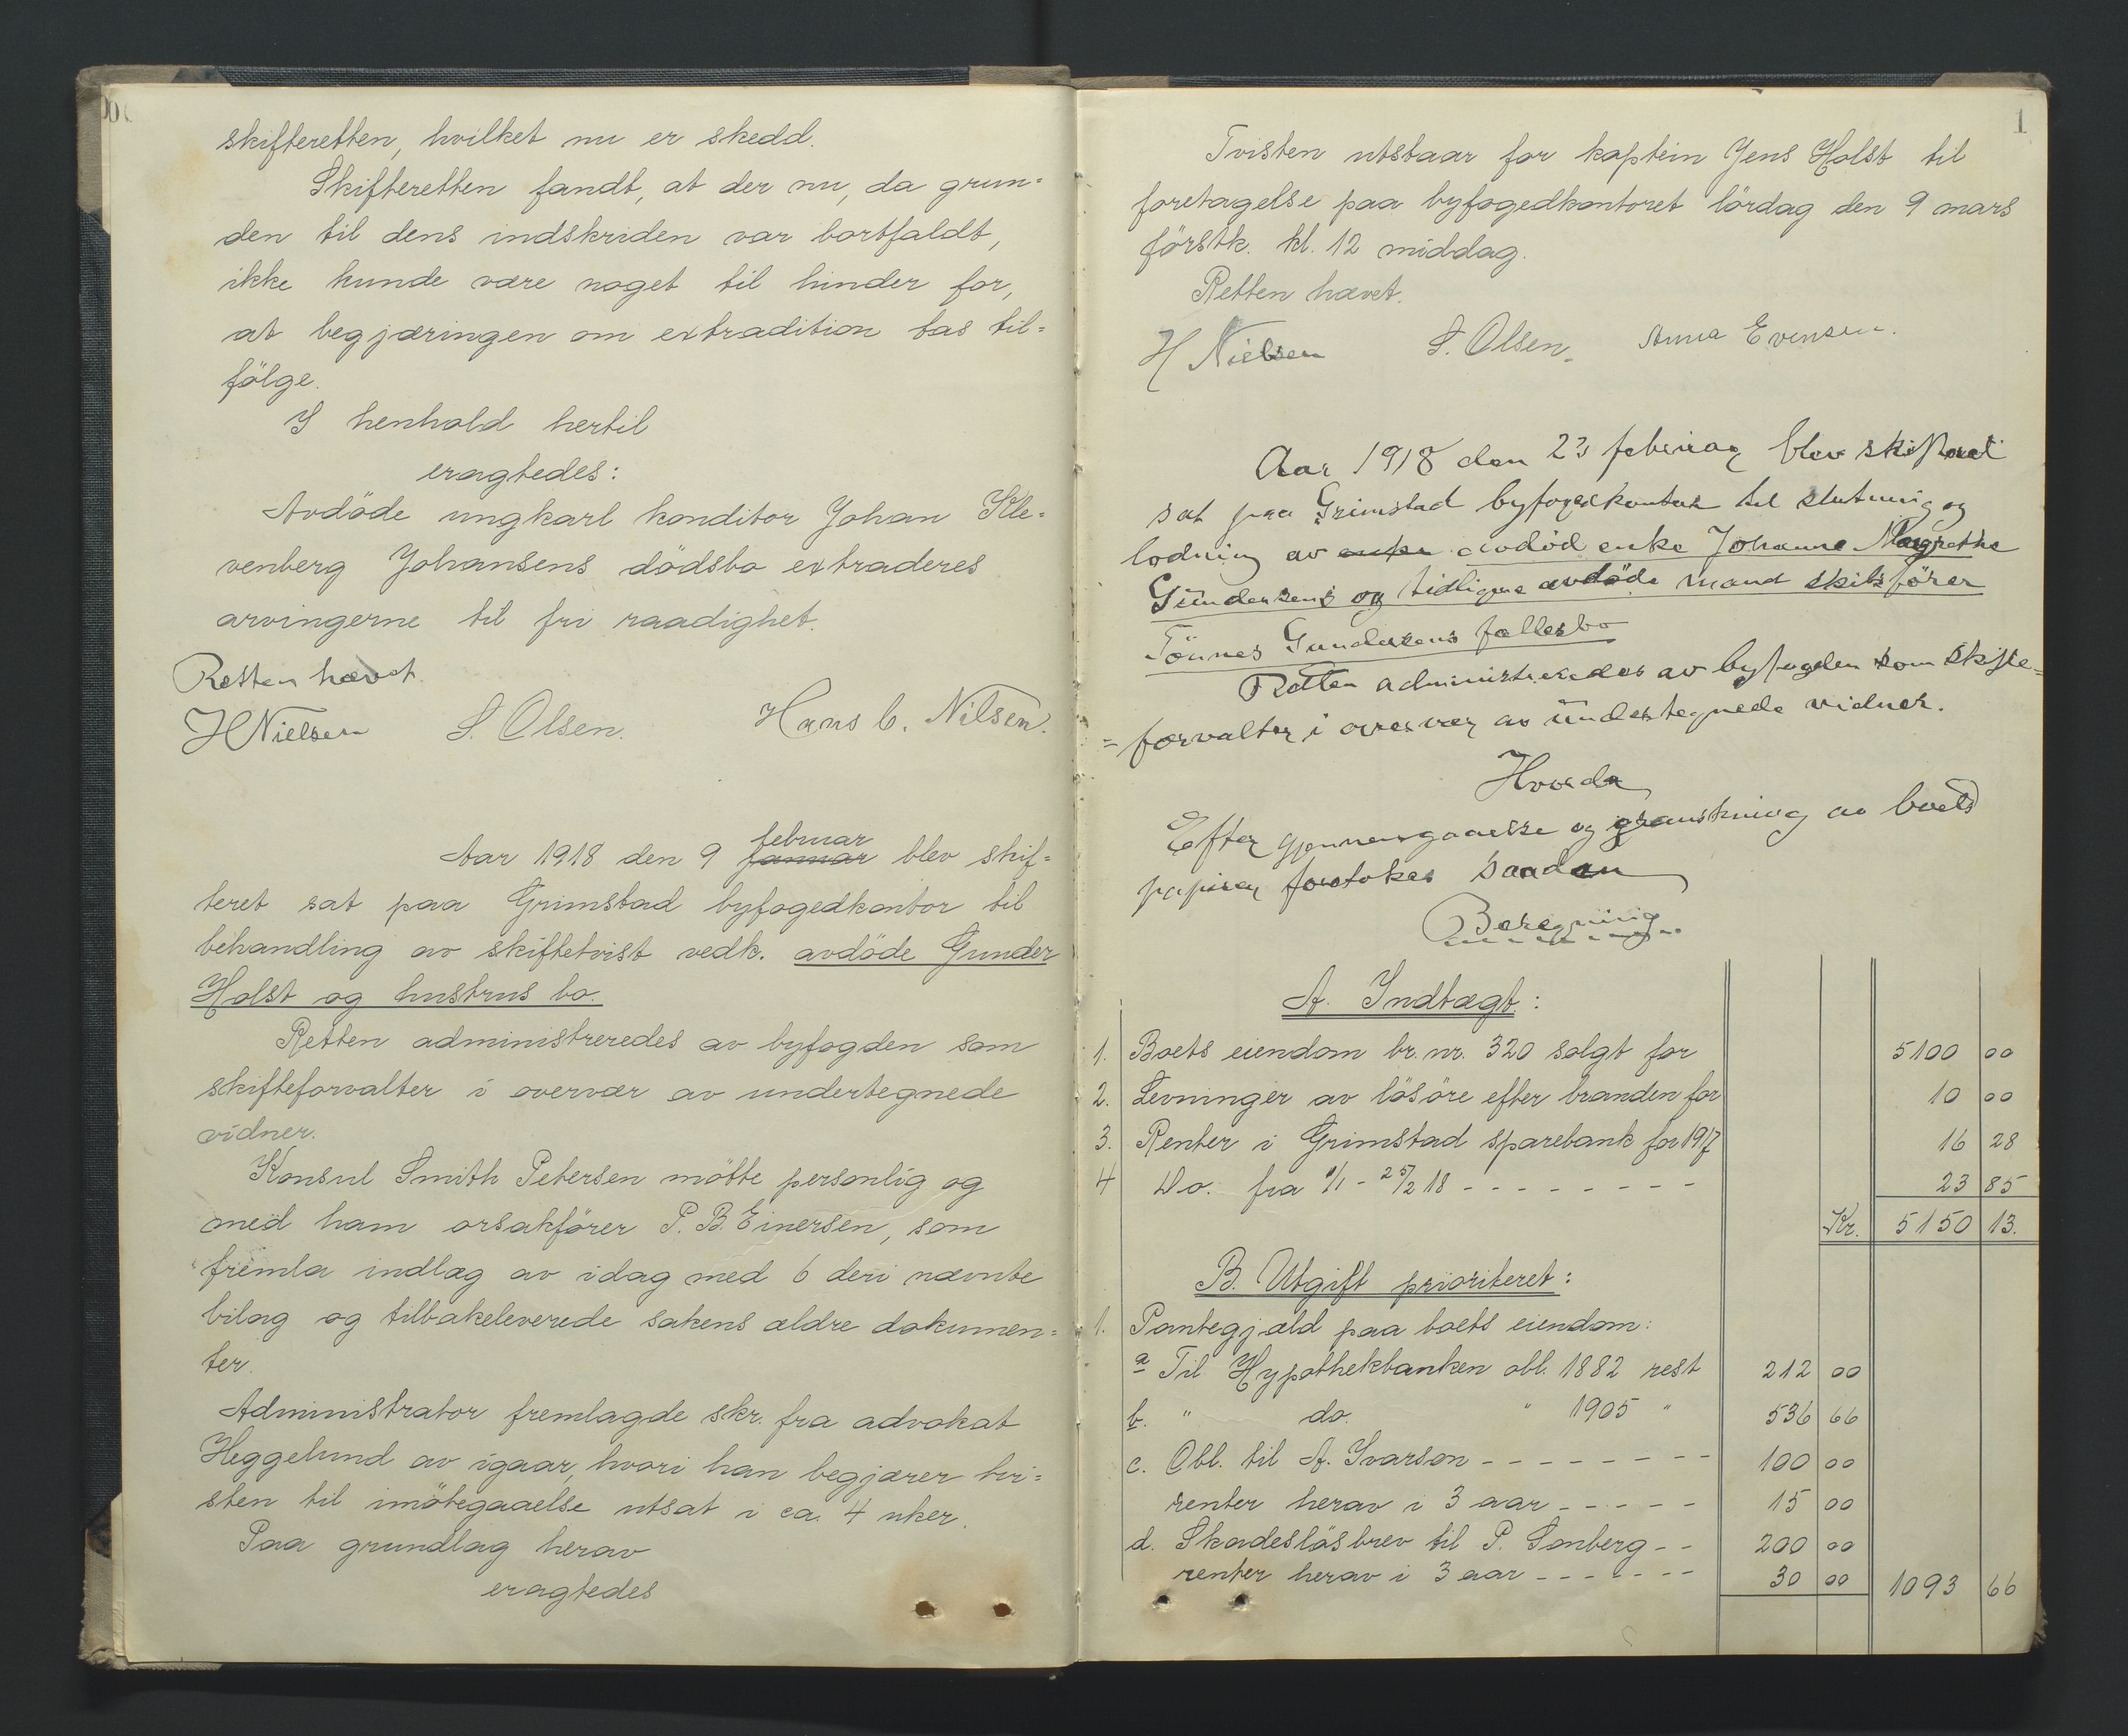 skifteretten, hvilket nu er skedd.
Skifteretten fandt, at der nu, da grun=
den til dens indskriden var bortfaldt,
ikke kunde være noget til hinder for,
at begjæringen om extradition tas til=
fölge.
I henhold hertil
eragtedes:
Avdöde ungkarl konditor Johan Kle=
venberg Johansens dödsbo extraderes
arvingerne til fri raadighet.
Retten hævet.
H Nielsen S. Olsen. Hans C. Nilsen.
februar
Aar 1918 den 9 januar blev skif=
teret sat paa Grimstad byfogedkontor til
behandling av skiftetvist vedk. avdöde Gunder
Holst og hustrus bo.
Retten administreredes av byfogden som
skifteforvalter i overvær av undertegnede
vidner.
Konsul Smith Petersen mötte personlig og
med ham orsakförer P. B. Einersen, som
fremla indlæg av idag med 6 deri nævnte
bilag og tilbakeleverede sakens ældre dokumen=
ter.
Administrator fremlagde skr. fra advokat
Heggelund av igaar, hvori han begjærer tvi=
sten til imötegaaelse utsat i ca. 4 uker.
Paa grundlag herav
eragtedes
1
Tvisten utstaar for kaptein Jens Holst til
foretagelse paa byfogedkontoret lördag den 9 mars
förstk. kl. 12 middag.
Retten hævet.
H Nielsen S. Olsen. Anna Evensen.
Aar 1918 den 23 februar blev skifteret
sat paa Grimstad byfogedkontor til slutning og
lodning av enke avdöd enke Johanne Margrethe
Gundersens og tidligere avdöde mand skibsförer
Tönnes Gundersens fællesbo
Retten administreredes av byfogden som skifte=
=forvalter i overvær av undertegnede vidner.
Hvorda
Efter gjennemgaaelse og granskning av boets
papirer foretokes saadan
Beregning
A. Indtægt:
1. Boets eiendom br. nr. 320 solgt for 5100 00
2. Levninger av lösöre efter branden for 10 00
3. Renter i Grimstad sparebank for 1917 16 28
4 Do. fra 1/1 - 25/2 18 - - - - - - - - 23 85
Kr. 5150 13.
B. Utgift prioriteret:
1. Pantegjæld paa boets eiendom:
a Til Hypothekbanken obl. 1882 rest 212 00
b. " do. " 1905 " 536 66
c. Obl. til A. Ivarson - - - - - - - - 100 00
renter herav i 3 aar - - - - - 15 00
d. Skadeslösbrev til P. Sonberg - - 200 00
renter herav i 3 aar - - - - - - - 30 00 1093 66